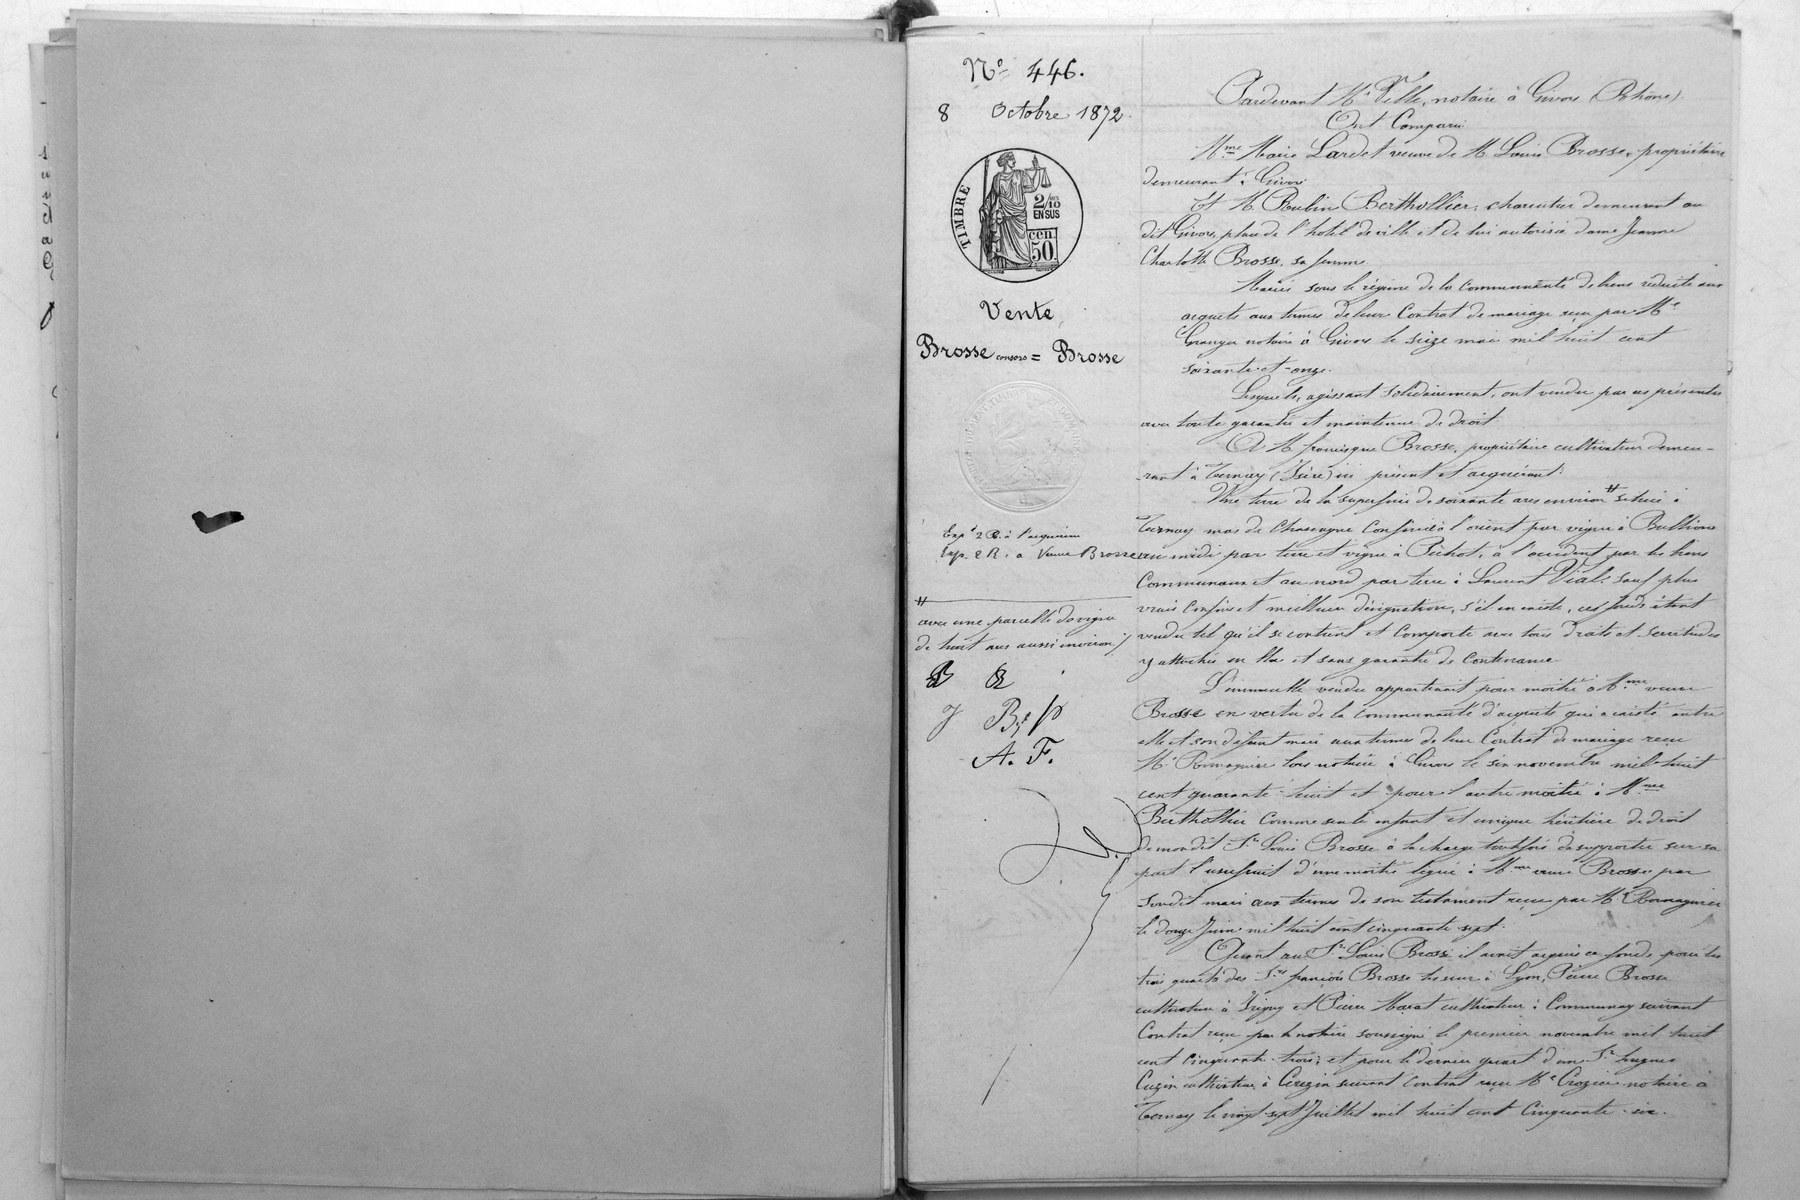 N° 446.
8 Octobre 1872.
TIMBRE
2/10
EN SUS
cen.
50.
Vente
Brosse consors = Brosse
Expt 2 R. à l'acquéreur
Exp. 2 R. a Veuve Brosse
#
avec une parcelle de vigne
de huit ares aussi environ
B
J
A. F.
Pardevant Me Velle, notaire à Givors (Rhône).
Ont Comparu
Mme Marie Lardet veuve de M Louis Brosse, propriétaire
demeurant à Givors
Et M. Rubin Berthollier, charcutier demeurant au
dit Givors, place de l'hotel de ville et de lui autorisée dame Jeanne
Charlotte Brosse, sa femme
Mariés sous le régime de la Communauté de biens réduite aux
acquets aux termes de leur Contrat de mariage reçu par Me
Granger notaire à Givors le seize mai mil huit cent
soixante-et-onze.
Lesquels, agissant solidairement, ont vendu par ces présentes
avec toute garantie et maintenue de droit
A M. françisque Brosse, propriétaire cultivateur demeu-
-rant à Ternay (Isère) ici présent et acquérant:
Une terre de la superficie de soixante ares environ # située à
Ternay mas de Chassagne Confinée à l'orient par vigne à Bullion
au midi par terre et vigne à Pichot, à l'occident par les biens
Communaux et au nord par terre à Laurent Vial; sauf plus
vrais Confins et meilleure désignation, s'il en existe, ces fonds étant
vendu tel qu'il se contient et Comporte avec tous droits et servitudes
y attachés en bloc et sans garantie de Contenance
L'immeuble vendu appartenait pour moitié à Mme veuve
Brosse en vertu de la Communauté d'acquets qui a existé entre
elle et son défunt mari aux termes de leur Contrat de mariage reçu
Me Romagnier lors notaire à Givors le six novembre mil-huit
cent quarante-huit et pour l'autre moitié à Mme
Berthollier Comme seule enfant et unique héritière de droit
de mondit Sr Louis Brosse à la charge toutefois de supporter sur sa
part l'usufruit d'une moitié légué à Mme veuve Brosse par
sondit mari aux termes de son testament reçu par Me Romagnier
le douze Juin mil huit cent cinquante sept.
Quant au Sr Louis Brosse il avait acquis ce fonds pour les
trois quarts des Srs françois Brosse tisseur à Lyon, Pierre Brosse
cultivateur à Irigny et Pierre Marat cultivateur à Communay suivant
Contrat reçu par le notaire soussigné le premier novembre mil huit
cent cinquante-trois; et pour le dernier quart d'un Sr hugues
Cuzin cultivateur à Cerezin suivant Contrat reçu Me Crozier notaire à
Ternay le vingt sept Juillet mil huit cent cinquante-six.